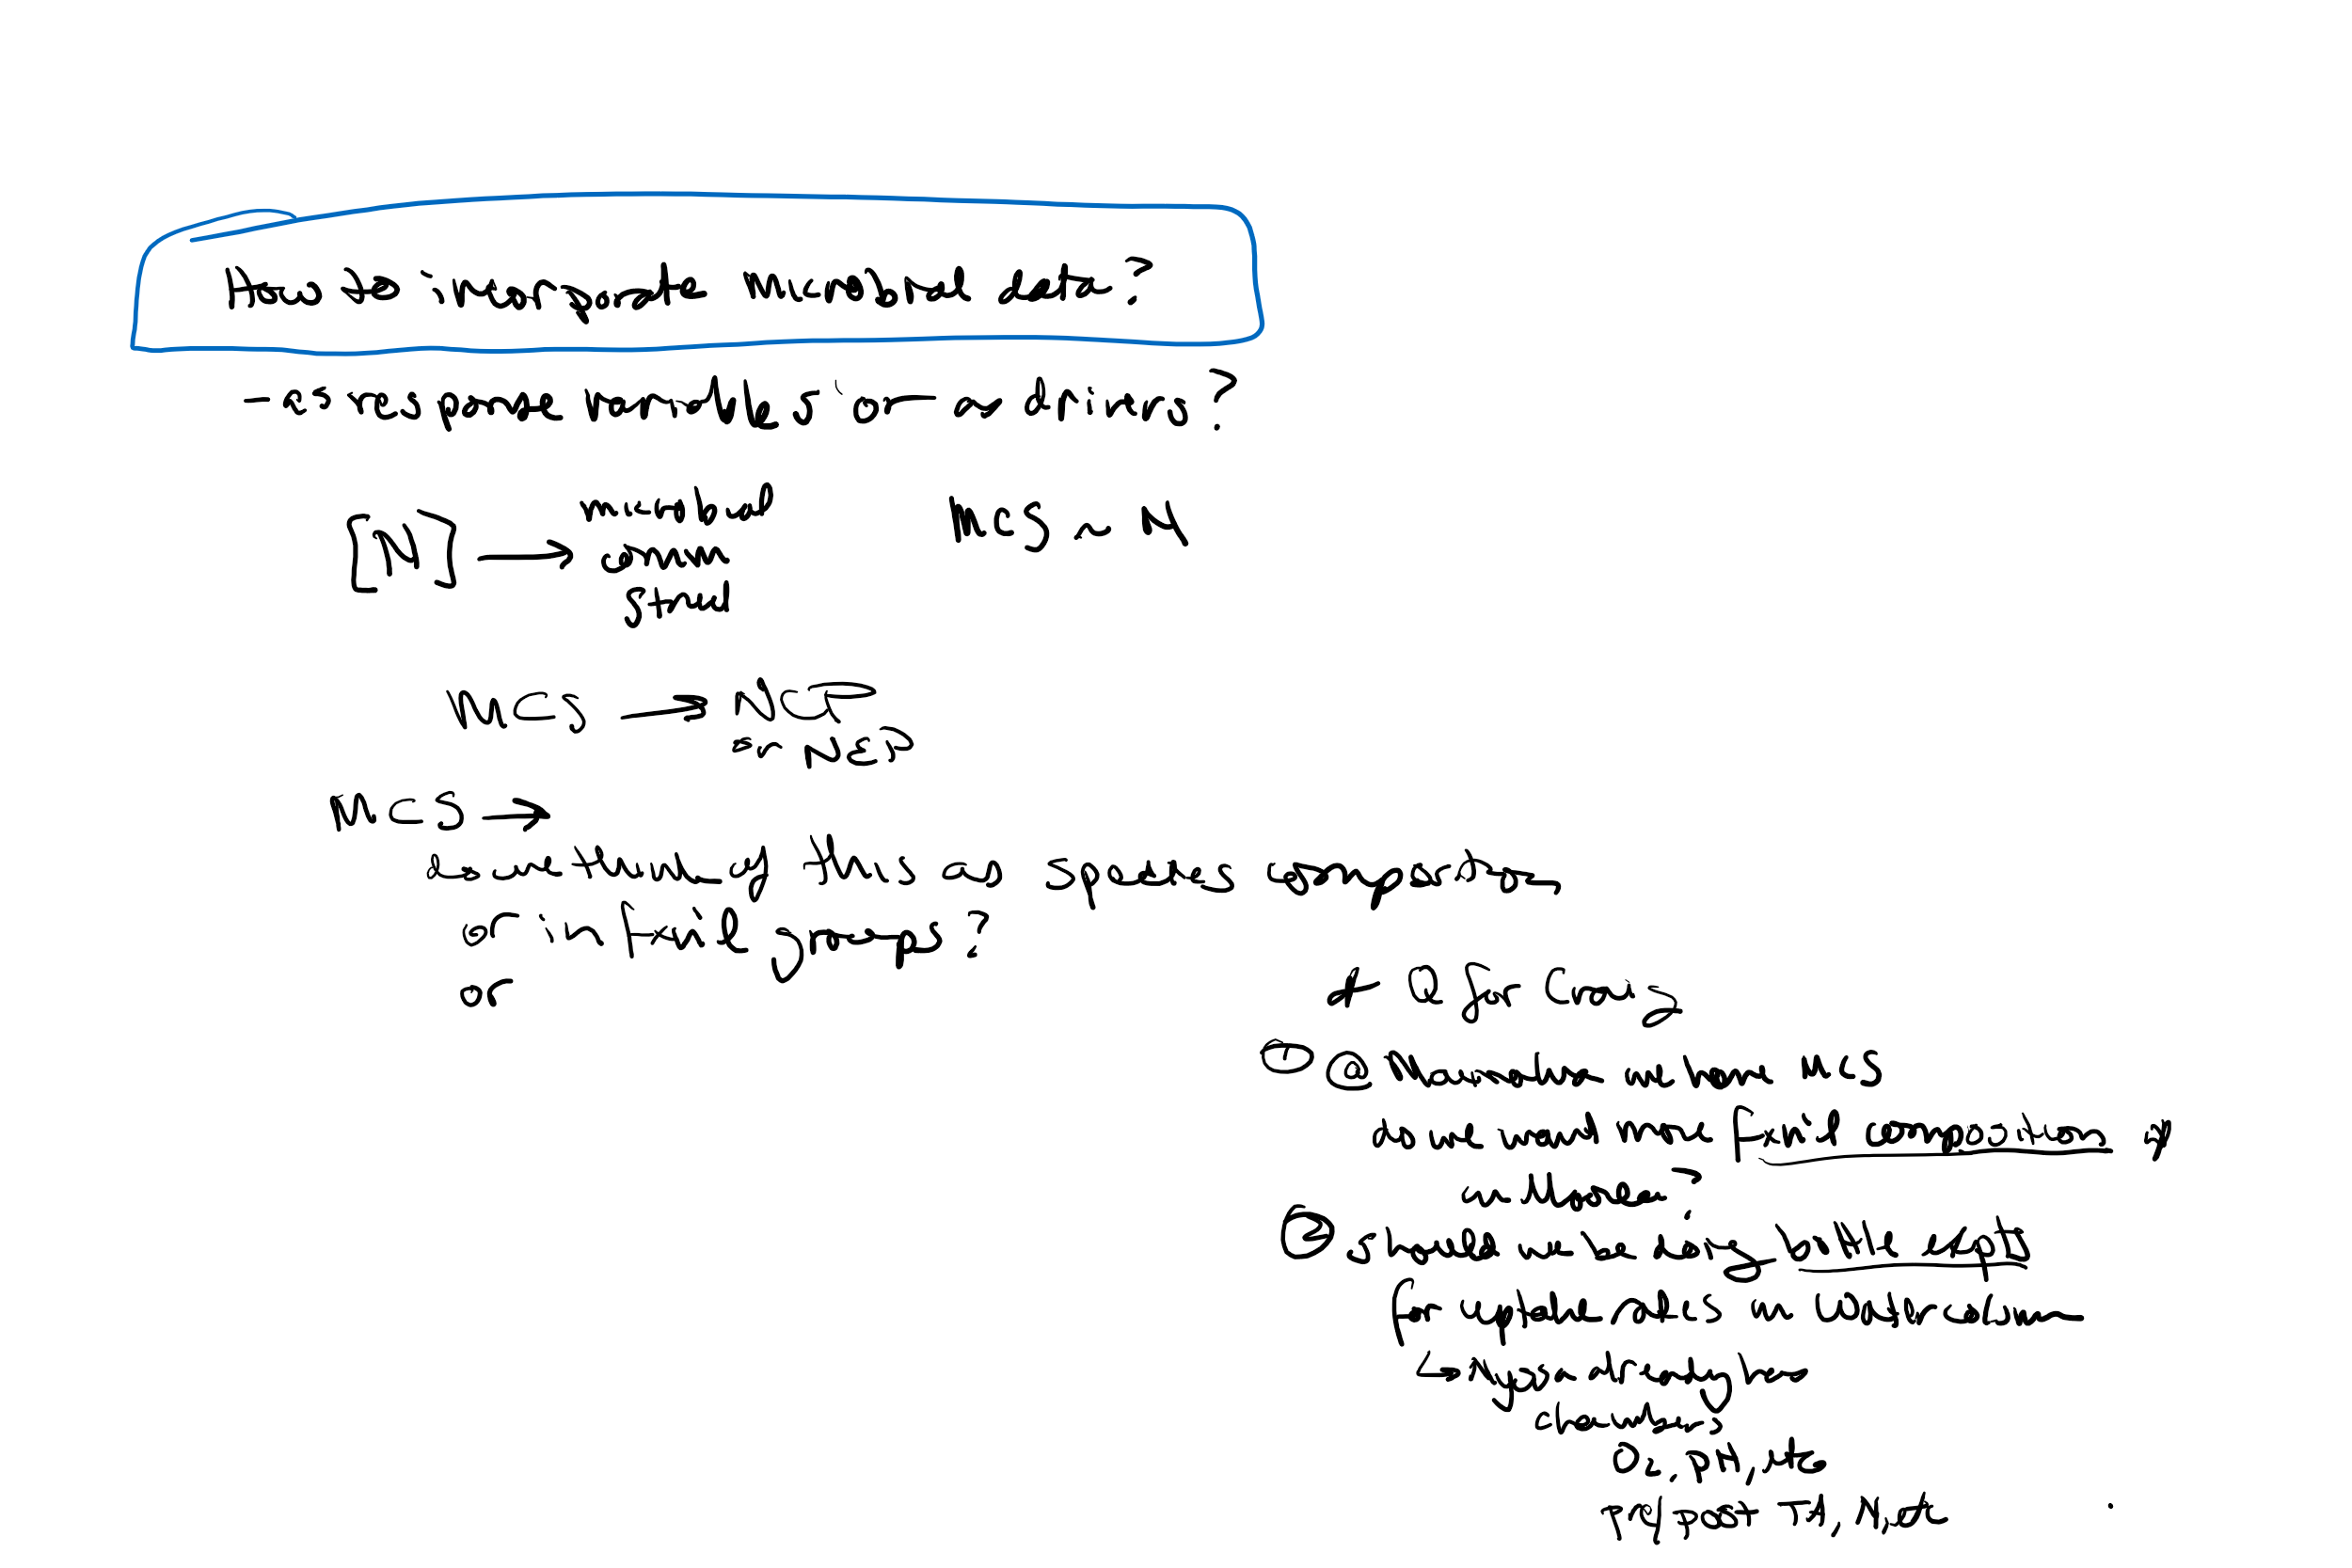 How to incorporate microbial data?
- as response variables or as drivers?
[N] → microbial
comm
struct
MCS ~ N
MCS → NCP
or NEP
MCS →
do we think of this as species composition
or in fxnil groups?
or
* Q for Craig
① @ Mañoahua we have MCS
do we want more fxnil composition of
in Moorea?
② should we be doing bottle expts
for uptake rates in water column
↳ Nyssa already has
chambers
O2, pH, etc
pre/post TA, N, etc